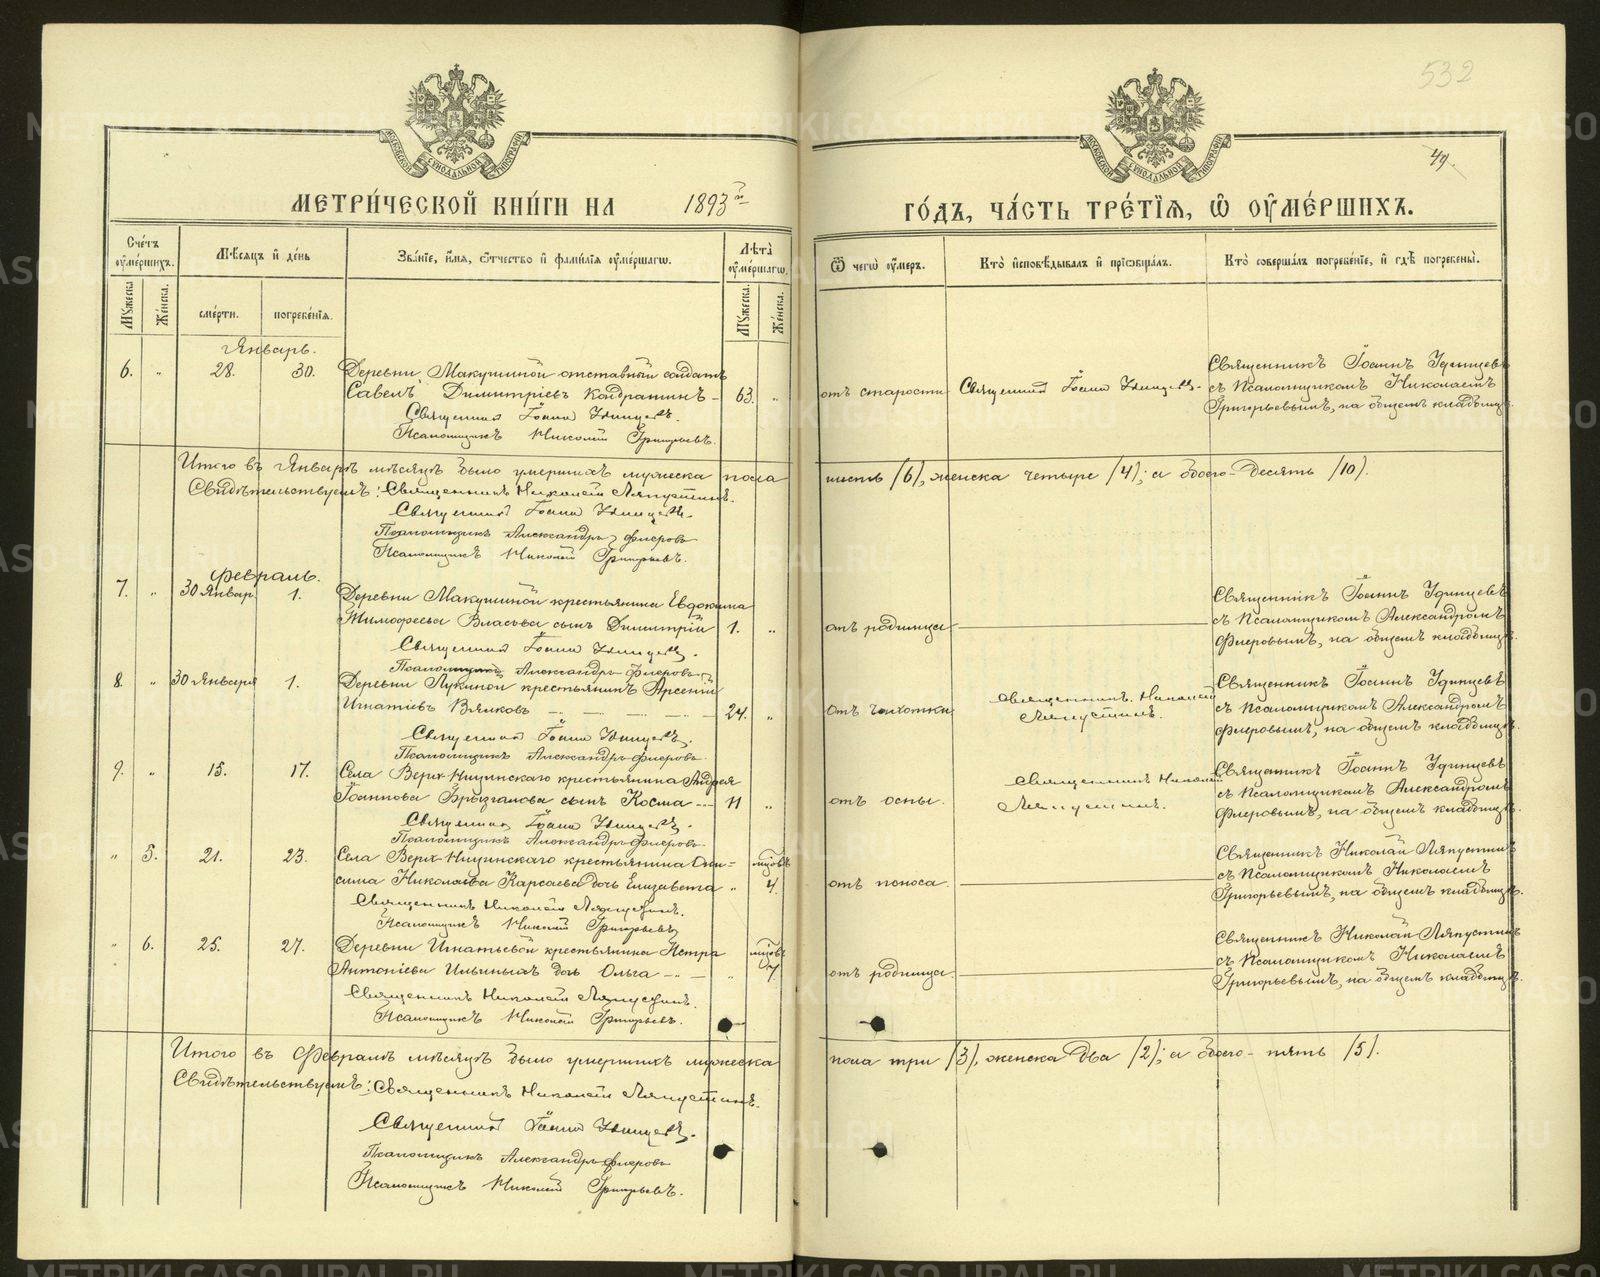 532
49.
МОСКОВСКОЙ СѴНОДАЛЬНОЙ ТИПОГРАФІИ
МОСКОВСКОЙ СѴНОДАЛЬНОЙ ТИПОГРАФІИ
МЕТРИ́ЧЕСКОЙ КНИ́ГИ НА 1893й ГО́ДЪ, ЧА́СТЬ ТРЕ́ТІѦ, Ѡ҆ ОУ҆МЕ́РШИХЪ.
Сче́тъ оу҆ме́ршихъ.
Мѣ́сяцъ и҆ де́нь
Зва́нїе, и҆́мя, ѻ҆́тчество и҆ фами́лїя оу҆ме́ршагѡ.
Лѣта̀ оу҆ме́ршагѡ.
Ѿ чегѡ̀ оу҆́меръ.
Кто̀ и҆сповѣ́дывалъ и҆ прїѡбща́лъ.
Кто̀ соверша́лъ погребе́нїе, и҆ гдѣ̀ погребены̀.
Му́жеска. Же́нска. сме́рти. погребе́нїя. Му́жеска. Же́нска.
Январь.
6. " 28. 30. Деревни Макушиной отставный солдатъ
Савелъ Димитріевъ Кондратинъ - 63. "
Священникъ Іоаннъ Удинцевъ.
Псаломщикъ Николай Григорьевъ.
отъ старости
Священникъ Іоаннъ Удинцевъ.
Священникъ Іоаннъ Удинцевъ
съ Псаломщикомъ Николаемъ
Григорьевымъ, на общемъ кладбищѣ.
Итого въ Январѣ мѣсяцѣ было умершихъ мужеска пола шесть /6/, женска четыре /4/; а обоего - десять /10/.
Свидѣтельствуемъ: Священникъ Николай Ляпустинъ.
Священникъ Іоаннъ Удинцевъ.
Псаломщикъ Александръ Флеровъ
Псаломщикъ Николай Григорьевъ.
Февраль.
7. " 30 Январ. 1. Деревни Макушиной крестьянина Евдокима
Тимофеева Власова сынъ Димитрій 1. "
Священникъ Іоаннъ Удинцевъ.
Псаломщикъ Александръ Флеровъ
отъ родимца
Священникъ Іоаннъ Удинцевъ
съ Псаломщикомъ Александромъ
Флеровымъ, на общемъ кладбищѣ.
8. " 30 Января 1. Деревни Лукиной крестьянинъ Арсеній
Игнатіевъ Вялковъ 24. "
Священникъ Іоаннъ Удинцевъ.
Псаломщикъ Александръ Флеровъ
Отъ чахотки
Священникъ Николай
Ляпустинъ.
Священникъ Іоаннъ Удинцевъ
съ Псаломщикомъ Александромъ
Флеровымъ, на общемъ кладбищѣ.
9. " 15. 17. Села Верх-Ницинскаго крестьянина Андрея
Іоаннова Брызгалова сынъ Косма 11 "
Священникъ Іоаннъ Удинцевъ.
Псаломщикъ Александръ Флеровъ
отъ оспы.
Священникъ Николай
Ляпустинъ.
Священникъ Іоаннъ Удинцевъ
съ Псаломщикомъ Александромъ
Флеровымъ, на общемъ кладбищѣ.
" 5. 21. 23. Села Верх-Ницинскаго крестьянина Они=
сима Николаева Карсаева дочь Елизавета " 4.
Священникъ Николай Ляпустинъ.
Псаломщикъ Николай Григорьевъ
отъ поноса.
Священникъ Николай Ляпустинъ
съ Псаломщикомъ Николаемъ
Григорьевымъ, на общемъ кладбищѣ.
" 6. 25. 27. Деревни Игнатьевой крестьянина Петра
Антоніева Ильиныхъ дочь Ольга "
Священникъ Николай Ляпустинъ.
Псаломщикъ Николай Григорьевъ.
отъ родимца.
Священникъ Николай Ляпустинъ
съ Псаломщикомъ Николаемъ
Григорьевымъ, на общемъ кладбищѣ.
Итого въ Февралѣ мѣсяцѣ было умершихъ мужеска пола три /3/, женска два /2/; а обоего - пять /5/.
Свидѣтельствуемъ: Священникъ Николай Ляпустинъ.
Священникъ Іоаннъ Удинцевъ.
Псаломщикъ Александръ Флеровъ
Псаломщикъ Николай Григорьевъ.
METRIKI.GASO-URAL.RU